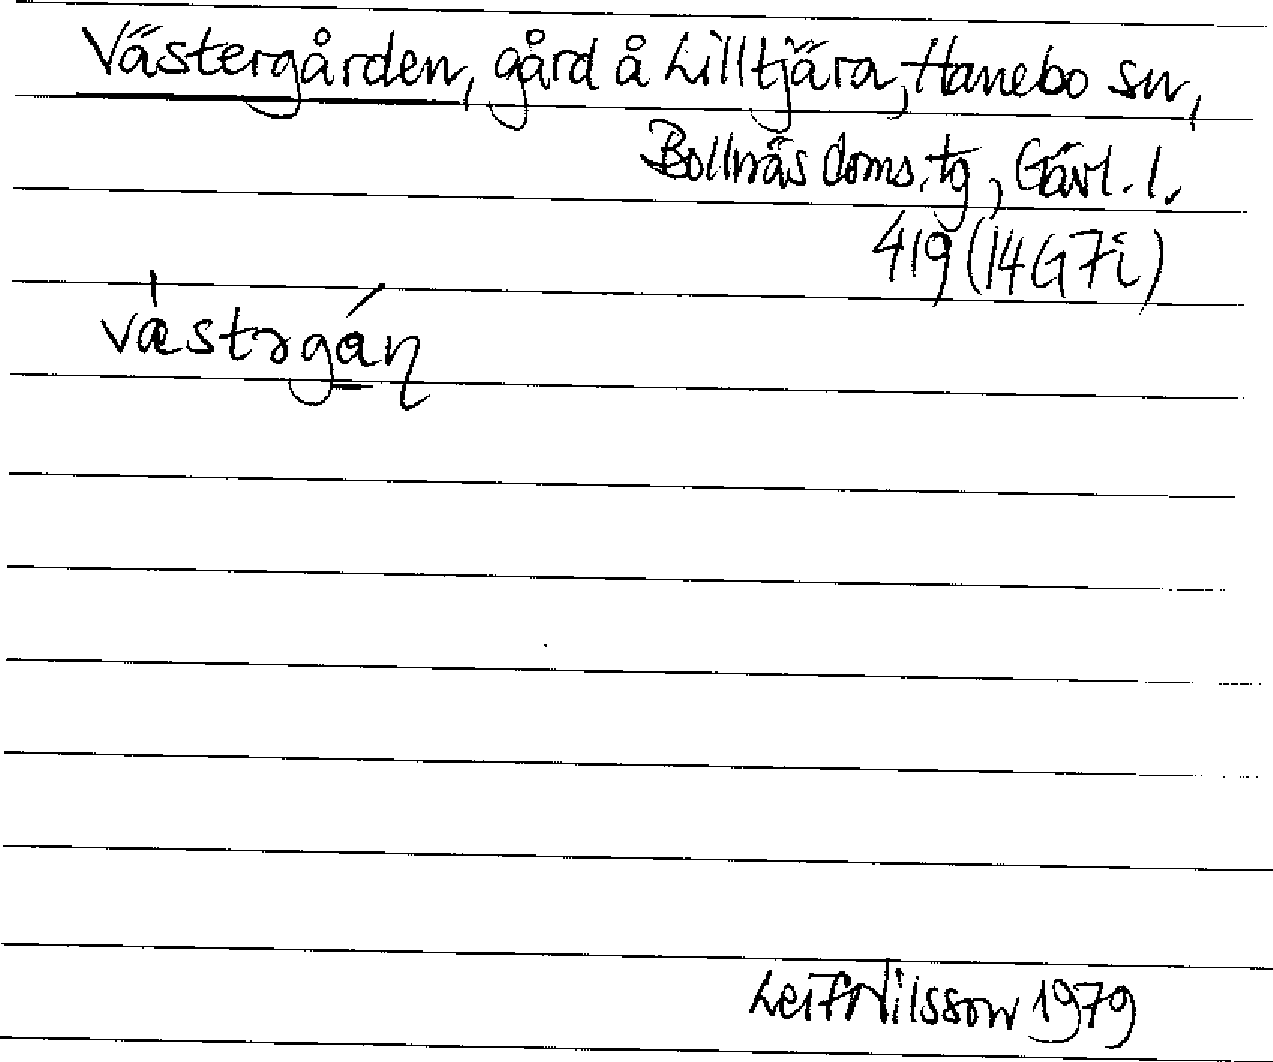 Västergården, gård å Lilltjära, Hanebo sn,
Bollnäs doms.tg, Gävl. l.
419 (14G7i)
västəgáɳ
Leif Nilsson 1979